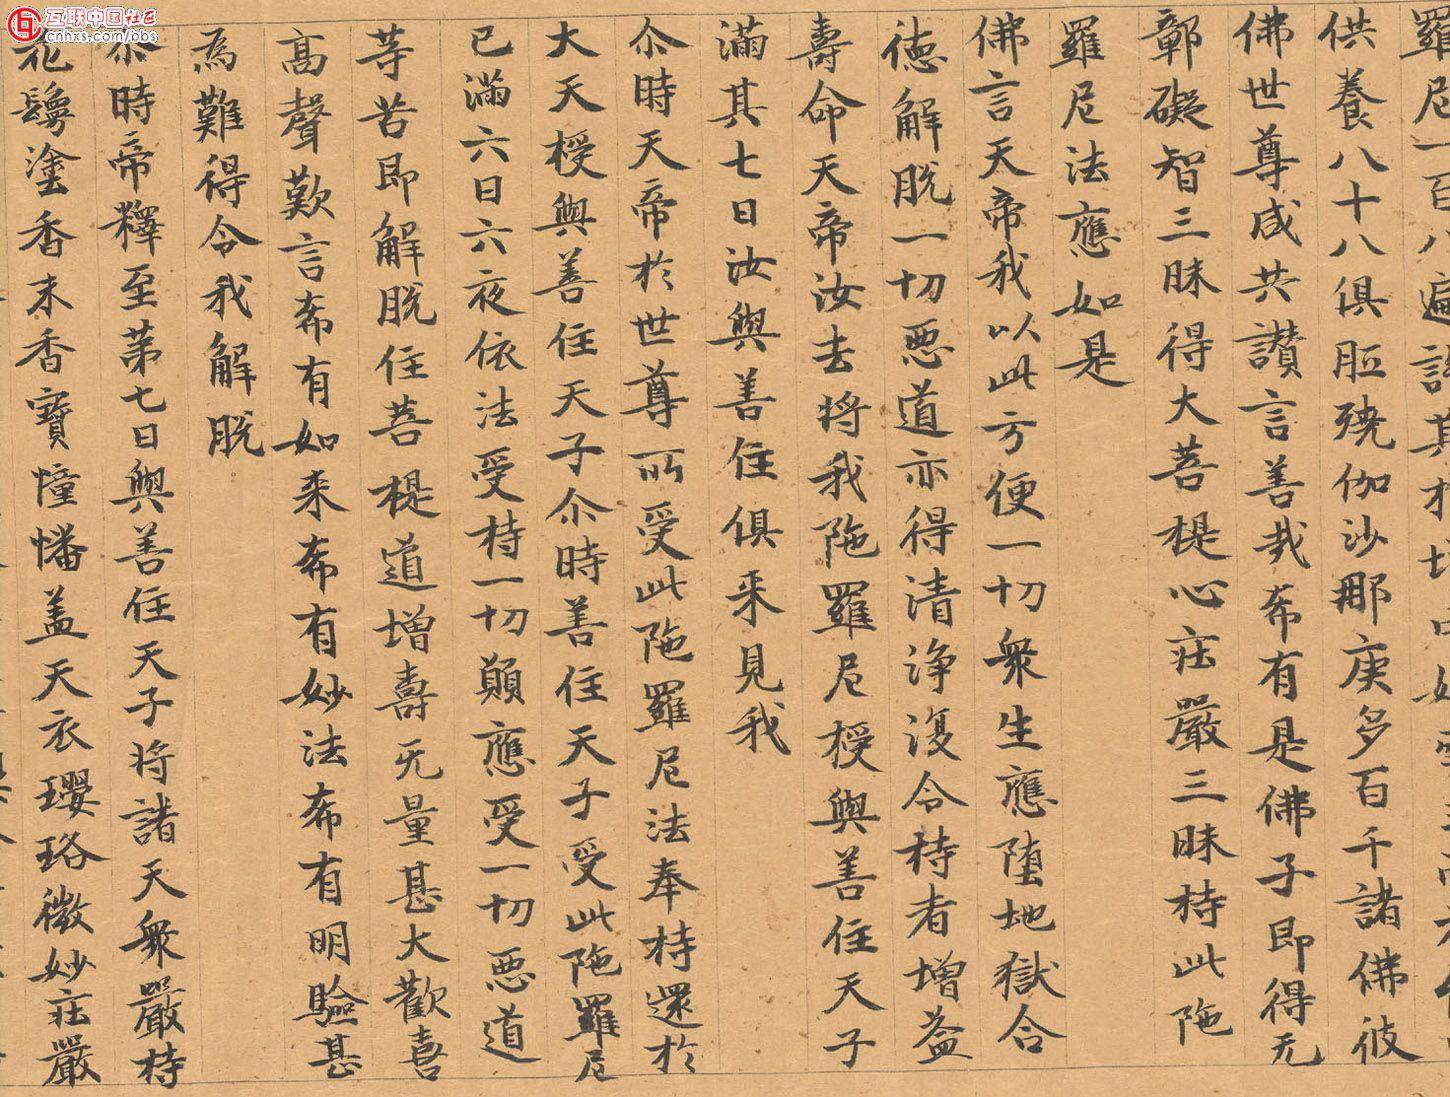 羅尼一百八遍
供養八十八俱胝殑伽沙那庾多百千諸佛彼
佛世尊咸共讚言善哉希有是佛子即得无
鄣礙智三昧得大菩提心莊嚴三昧持此陁
羅尼法應如是
佛言天帝我以此方便一切衆生應墮地獄令
德解脫一切惡道亦得清淨復令持者增益
壽命天帝汝去將我陁羅尼授與善住天子
滿其七日汝與善住俱来見我
尒時天帝於世尊所受此陁羅尼法奉持還於
大天授與善住天子尒時善住天子受此陁羅尼
已滿六日六夜依法受持一切願應受一切惡道
等苦即解脫住菩提道增壽无量甚大歡喜
髙聲歎言希有如来希有妙法希有明驗甚
為難得令我解脫
尒時帝釋至苐七日與善住天子将諸天衆嚴持
花鬘塗香末香寶幢幡盖天衣瓔珞微妙莊嚴
互联中国社区
cnhxs.com/bbs